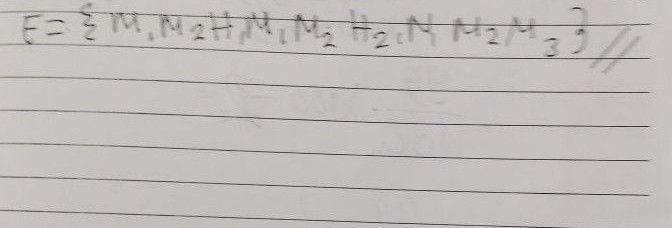 E = { M, M₂ H, M, M₂ H₂, M, M₂ M₃ } //